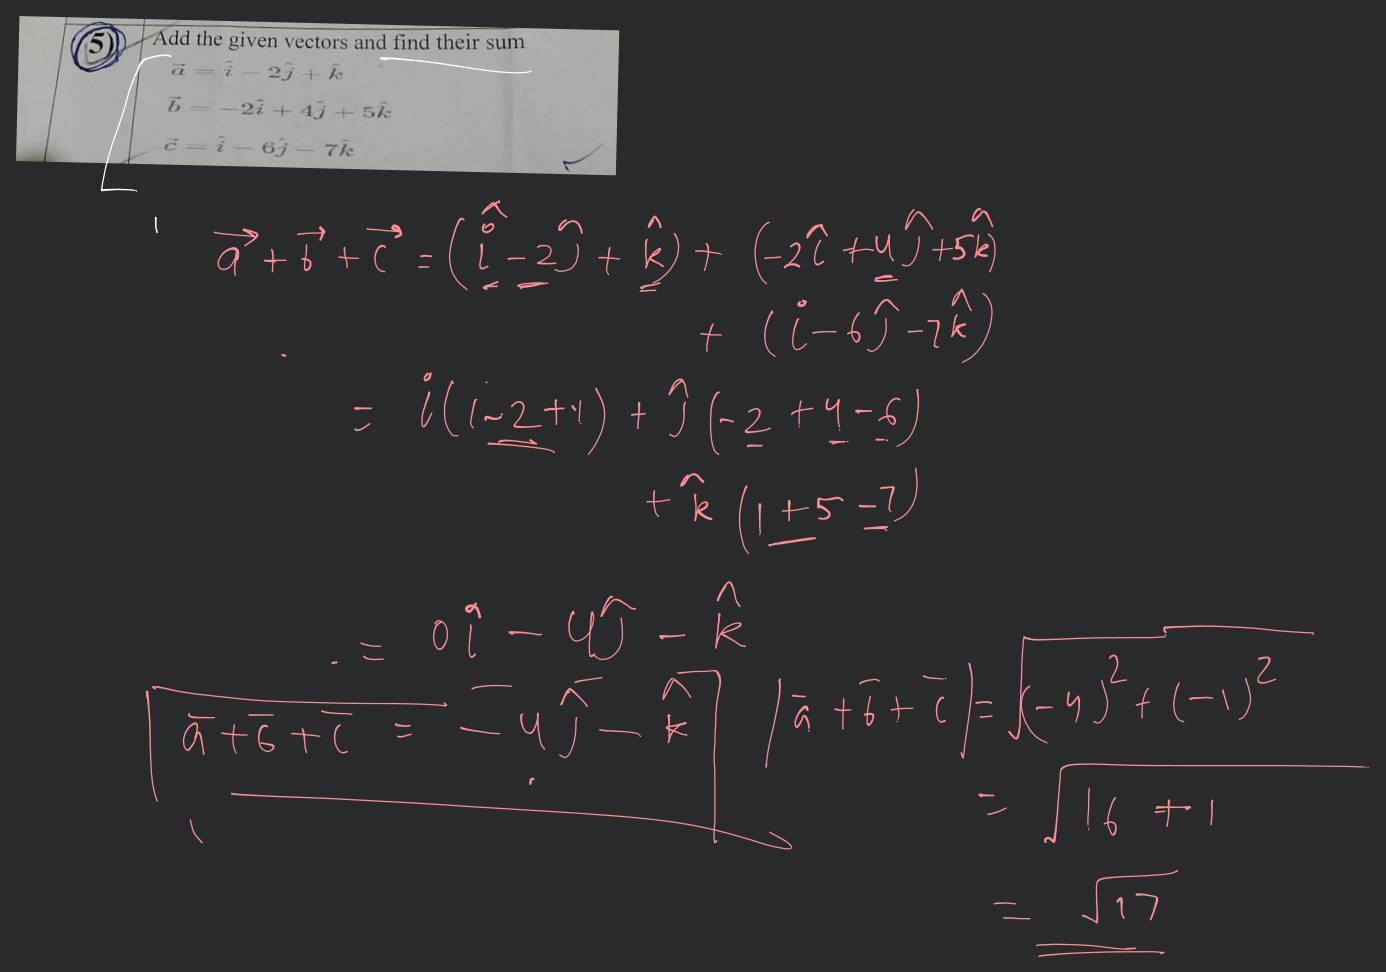 5) Add the given vectors and find their sum
a⃗ = î − 2ĵ + k̂
b⃗ = −2î + 4ĵ + 5k̂
c⃗ = î − 6ĵ − 7k̂
a⃗ + b⃗ + c⃗ = (î − 2ĵ + k̂) + (−2î + 4ĵ + 5k̂)
+ (i − 6ĵ − 7k̂)
= i(1 − 2 + 1) + ĵ(−2 + 4 − 6)
+ k̂(1 + 5 − 7)
= 0î − 4ĵ − k̂
a̅ + b̅ + c̅ = −4ĵ − k̂
|a̅ + b̅ + c̅| = √(−4)² + (−1)²
= √16 + 1
= √17